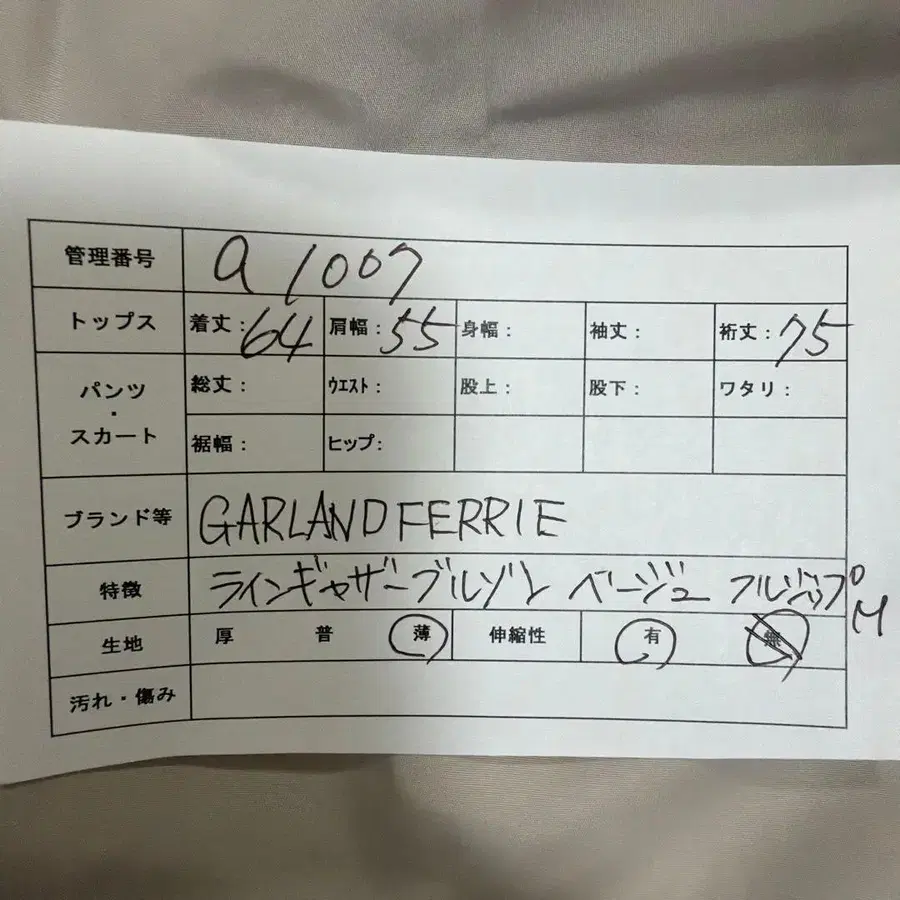 管理番号 a 1007
トップス 着丈：64 肩幅：55 身幅： 袖丈： 裄丈：75
パンツ・スカート 総丈： ウエスト： 股上： 股下： ワタリ：
裾幅： ヒップ：
ブランド等 GARLANDFERRIE
特徴 ラインギャザーブルゾン ベージュ フルジップ M
生地 厚 普 薄 伸縮性 有 無
汚れ・傷み